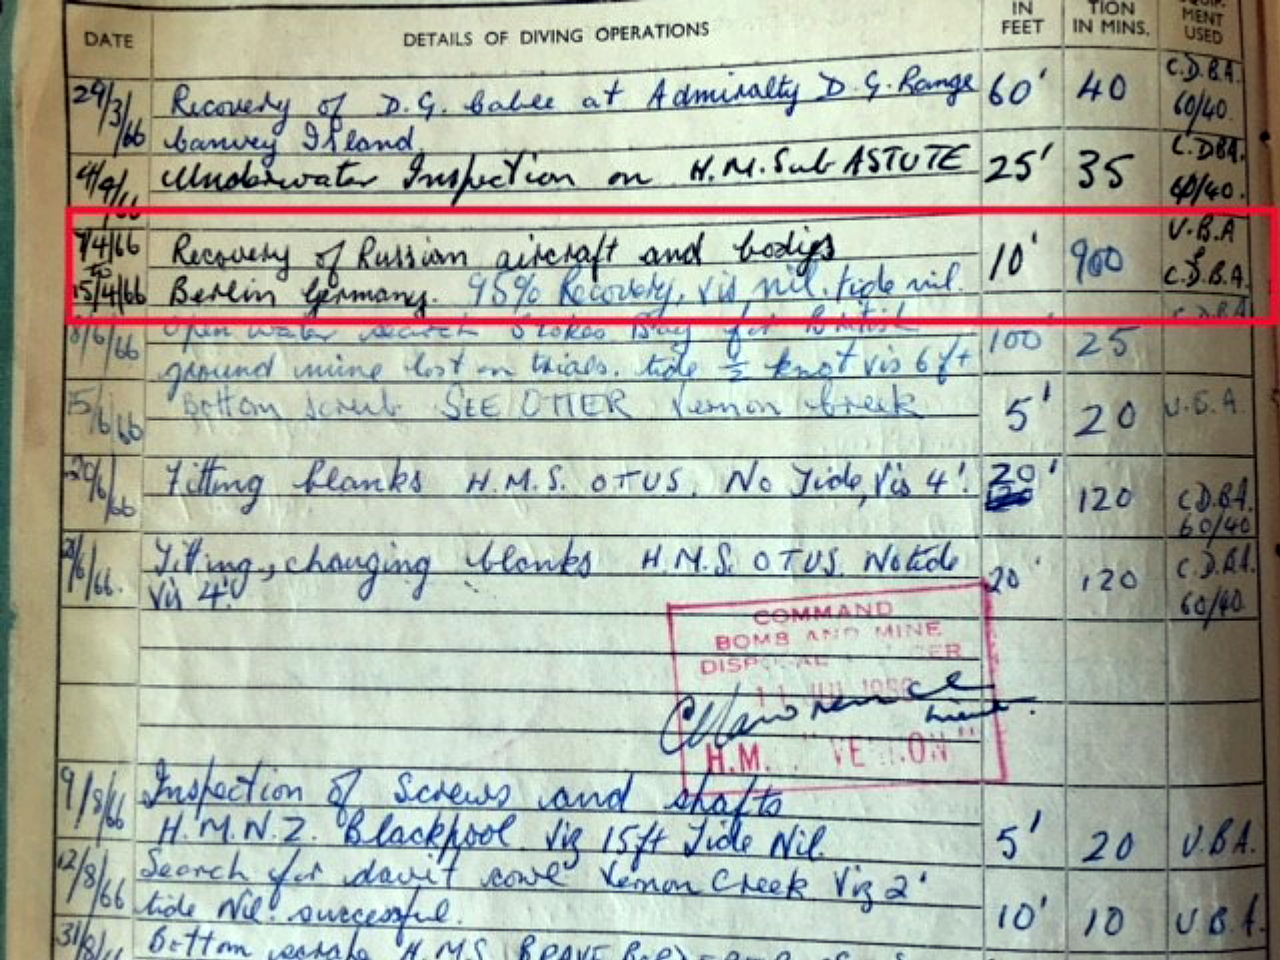 DATE DETAILS OF DIVING OPERATIONS IN FEET TION IN MINS. EQUIP- MENT USED
29/3/66 Recovery of D.G. Cable at Admiralty D.G. Range 60' 40 C.D.B.A. 60/40.
Canvey Island
4/4/66 Underwater Inspection on H.M.Sub ASTUTE 25' 35 C.DBA. 60/40.
7/4/66 Recovery of Russian aircraft and bodies 10' 900 U.B.A
to 15/4/66 Berlin Germany. 95% Recovery. vis nil. tide nil. & C.D.B.A.
8/6/66 Open water search Stokes Bay for British 100' 25 C.DBA
ground mine lost on trials. tide ½ knot vis 6ft
15/6/66 Bottom scrub SEE OTTER Vernon Creek 5' 20 U.B.A.
20/6/66 Fitting blanks H.M.S. OTUS. No Tide, Vis 4'. 20' 120 C.D.B.A. 60/40
21/6/66. Fitting, changing blanks H.M.S. OTUS. No tide 20' 120 C.D.B.A. 60/40
Vis 4'.
COMMAND
BOMB AND MINE
DISPOSAL
11 JUL
Lieut.
H.M. "VERNON"
9/8/66 Inspection of Screws and shafts
H.M.N.Z. Blackpool. Viz 15ft Tide Nil. 5' 20 U.B.A.
12/8/66 Search for davit cowl Vernon Creek Viz 2'
tide Nil. successful. 10' 10 U.B.A.
31/8/ Bottom H.M.S. BRAVE